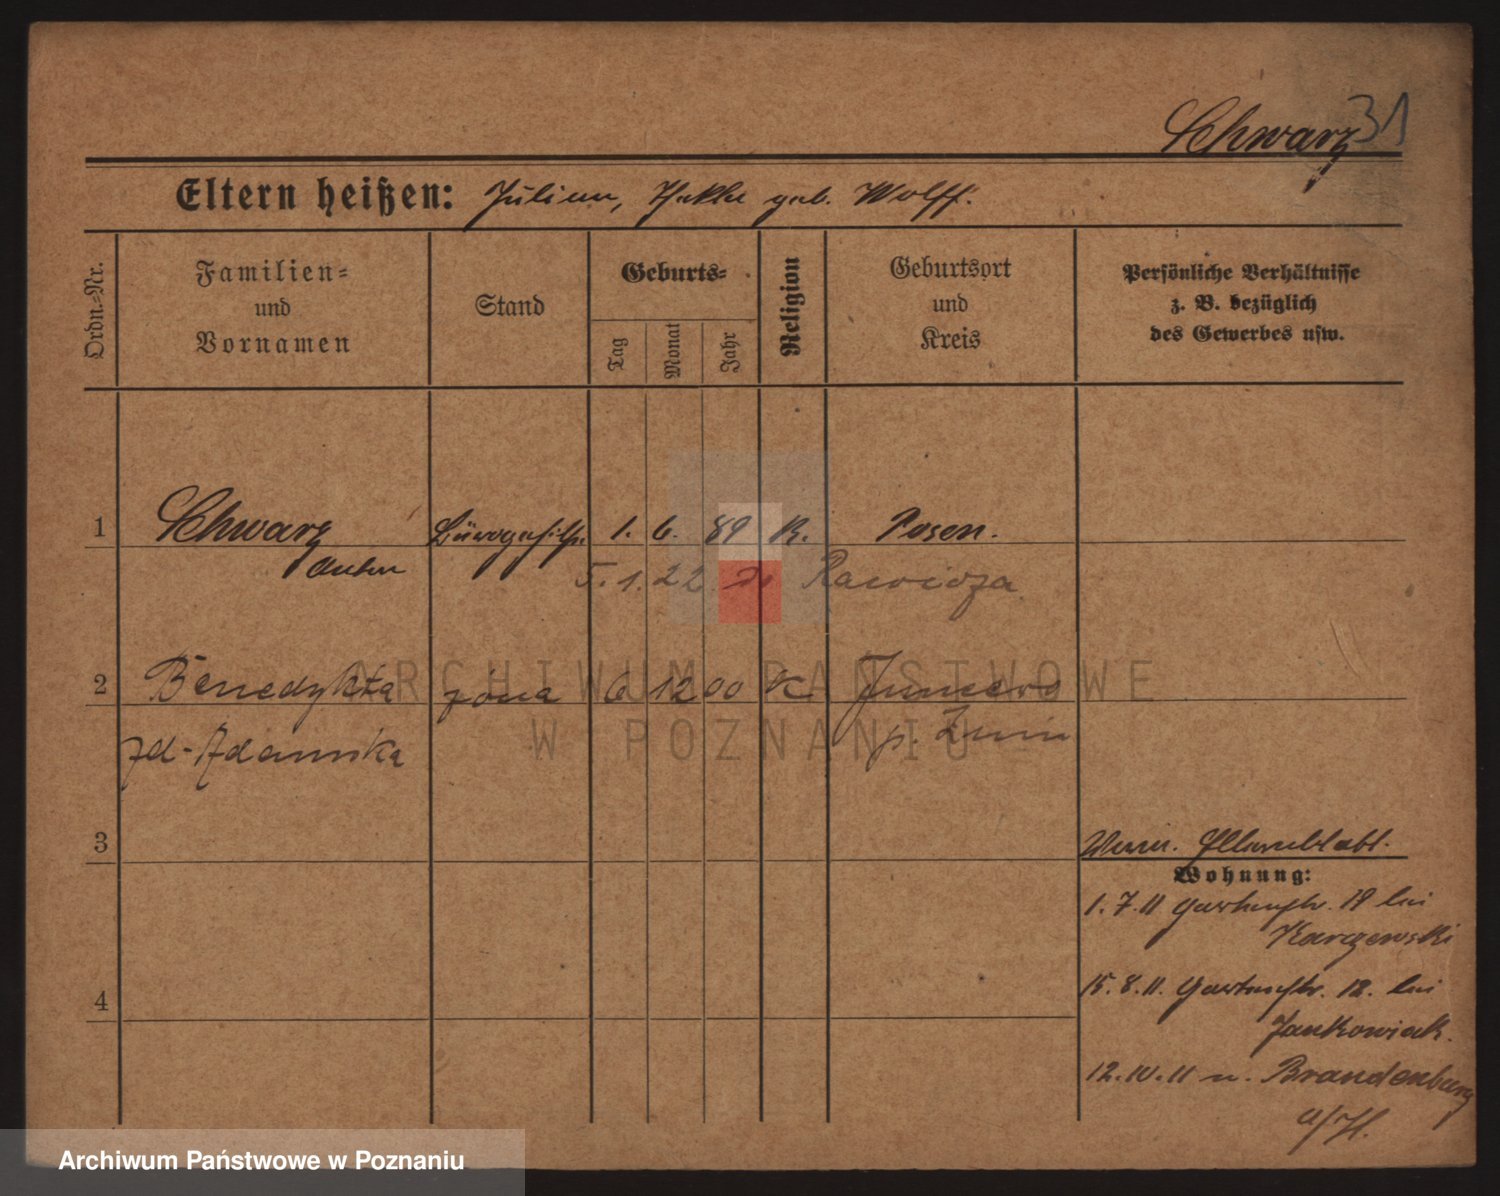 31
Schwarz
Eltern heißen: Julian, Thekla geb. Wolff.
Ordn.=Nr.
Familien=
und
Vornamen
Stand
Geburts=
Tag
Monat
Jahr
Religion
Geburtsort
und
Kreis
Persönliche Verhältnisse
z. B. bezüglich
des Gewerbes usw.
1 Schwarz Bürogehilfe 1. 6. 89 K. Posen.
Anton
5.1.22 do Rawicza
2 Benedykta żona 6 12 00 K.
zd-Adamska p. Żnin
3
Wohnung:
1.7.11 Gartenstr. 18 bei
Karczewski
15.8.11. Gartenstr. 12. bei
Jankowiak.
12.10.11 n. Brandenburg
a/H.
4
ARCHIWUM PAŃSTWOWE
W POZNANIU
Archiwum Państwowe w Poznaniu